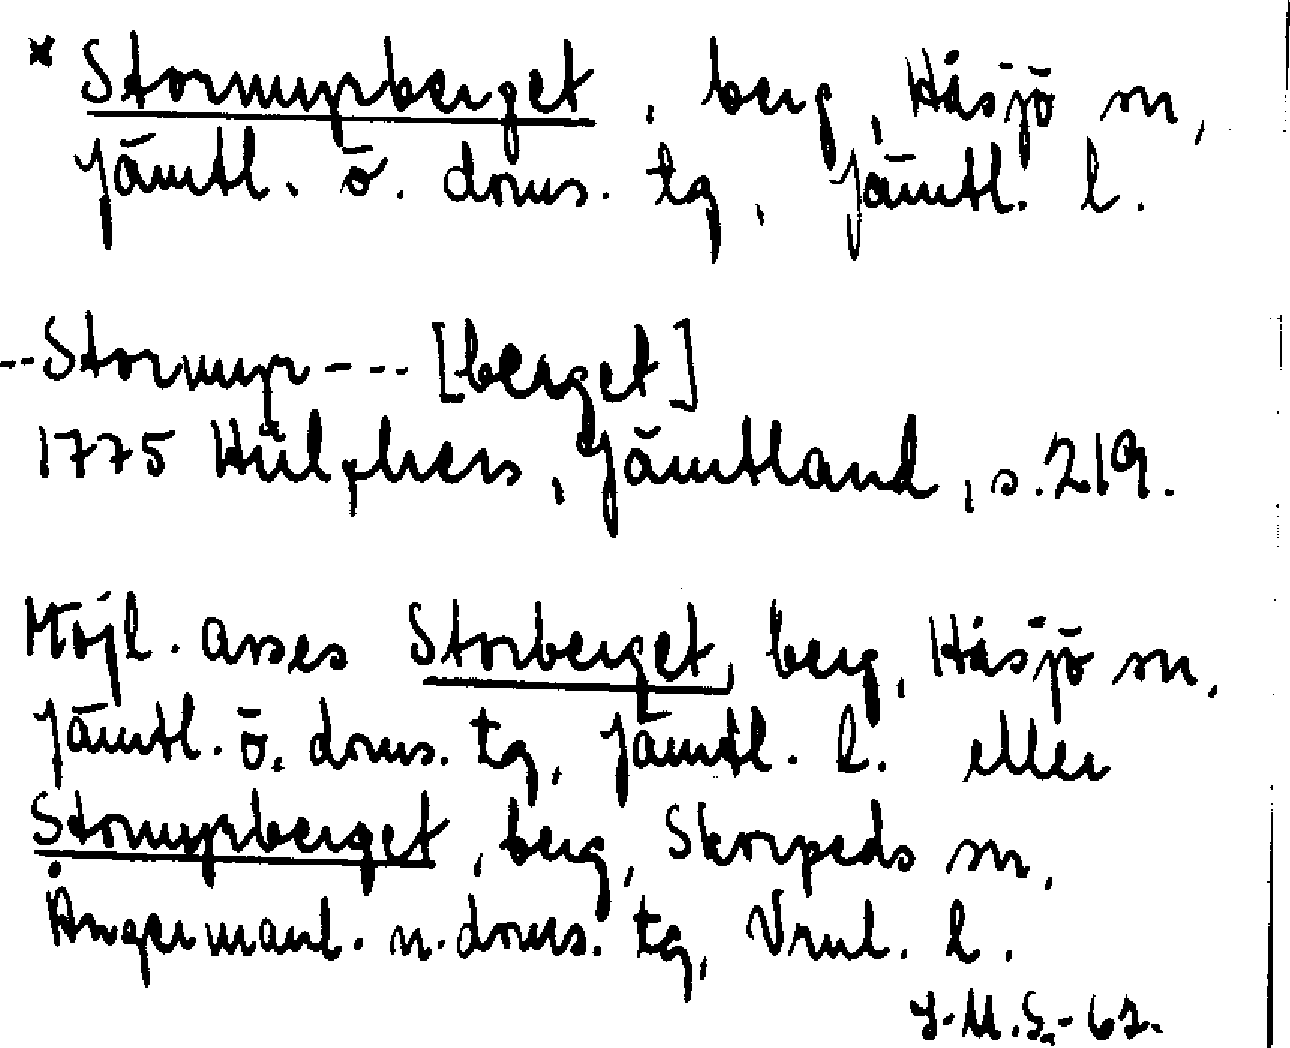 * Stormyrberget, berg, Håsjö sn,
Jämtl. ö. doms. tg, Jämtl. l.
--Stormyr--- [berget]
1775 Hülphers, Jämtland, s. 219.
Möjl. avses Storberget, berg, Håsjö sn,
Jämtl. ö. doms. tg, Jämtl. l. eller
Stormyrberget, berg, Skorpeds sn,
Ångermanl. n. doms. tg, Vrnl. l.